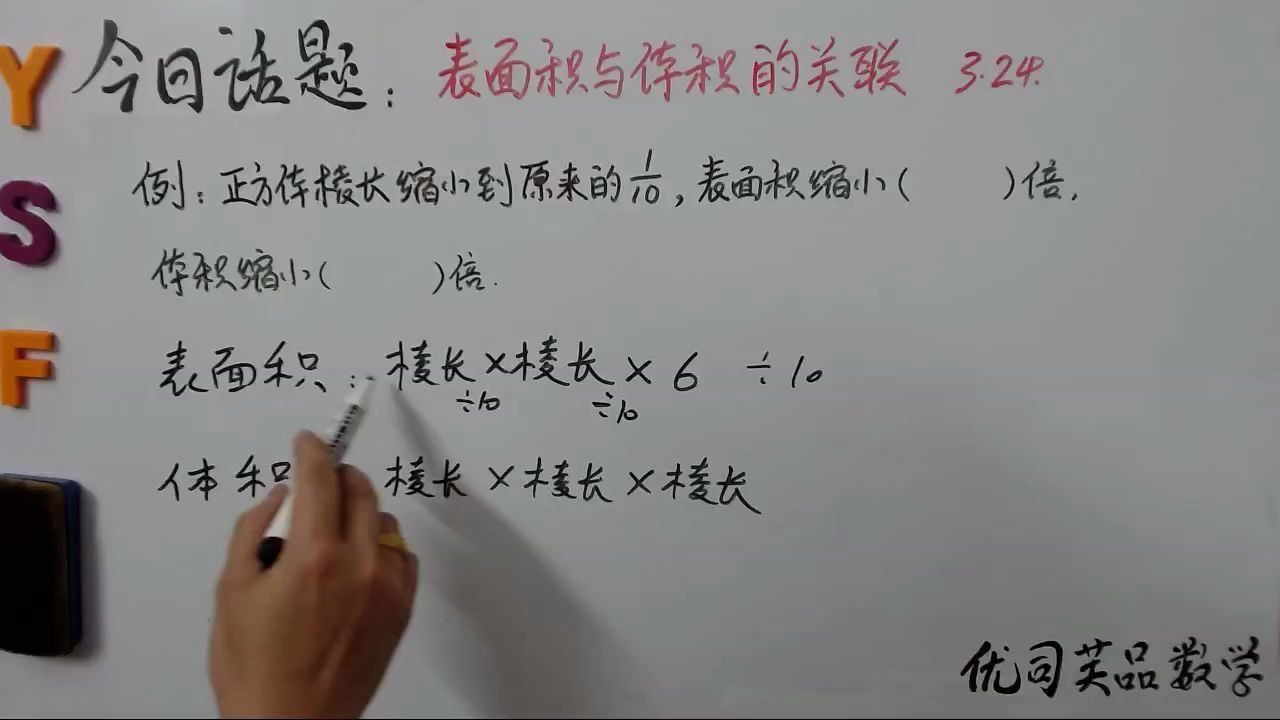 今日话题：表面积与体积的关联 3.24.
例：正方体棱长缩小到原来的1/10，表面积缩小（ ）倍，
体积缩小（ ）倍.
表面积：棱长×棱长×6 ÷10
÷10 ÷10
体积 棱长×棱长×棱长
优司芙品数学
Y
S
F